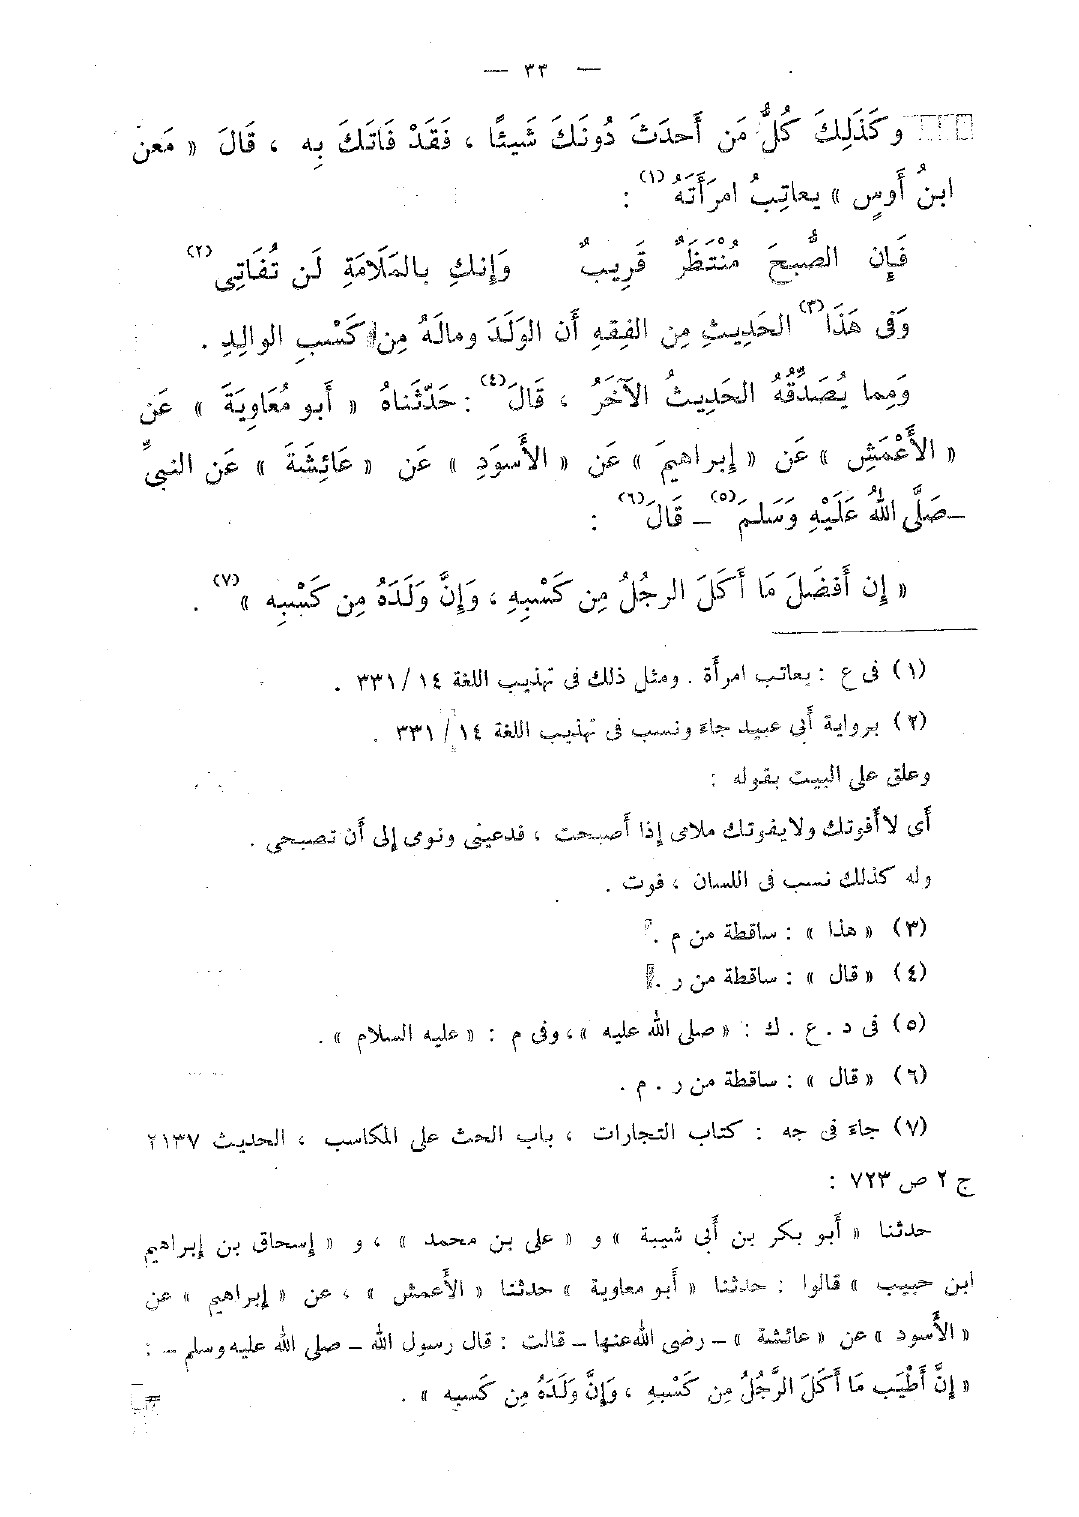 — ٣٣ —
وكَذَلِكَ كُلُّ مَن أَحدَثَ دُونَكَ شَيئًا ، فَقَدْ فَاتَكَ بِه ، قَالَ « مَعن
ابنُ أَوسٍ » يعاتِبُ امرَأَتَهُ (١) :
فَإِن الصُّبحَ مُنْتَظَرٌ قَرِيبٌ وَإِنكِ بالمَلَامَةِ لَن تُفَاتِى (٢)
وَفى هَذَا (٣) الحَدِيثِ مِن الفِقهِ أَن الوَلَدَ ومالَهُ مِن كَسْبِ الوالِدِ .
وَمِما يُصَدِّقُهُ الحَدِيثُ الآخَرُ ، قَالَ (٤) : حَدّثَناهُ « أَبو مُعَاوِيَةَ » عَن
« الأَعْمَشِ » عَن « إِبراهيمَ » عَن « الأَسوَدِ » عَن « عَائِشَةَ » عَن النبىِّ
– صَلَّى اللهُ عَلَيْهِ وَسَلمَ (٥) – قَالَ (٦) :
« إِن أَفضَلَ مَا أَكَلَ الرجُلُ مِن كَسْبِهِ ، وَإِنَّ وَلَدَهُ مِن كَسْبِه » (٧) .
(١) فى ع : يعاتب امرأة . ومثل ذلك فى تهذيب اللغة ١٤ / ٣٣١ .
(٢) برواية أبي عبيد جاء ونسب فى تهذيب اللغة ١٤ / ٣٣١ .
وعلق على البيت بقوله :
أى لا أفوتك ولا يفوتك ملامى إذا أصبحت ، فدعينى ونومى إلى أن تصبحى .
وله كذلك نسب فى اللسان ، فوت .
(٣) « هذا » : ساقطة من م .
(٤) « قال » : ساقطة من ر .
(٥) فى د . ع . ك : « صلى الله عليه » ، وفى م : « عليه السلام » .
(٦) « قال » : ساقطة من ر . م .
(٧) جاء فى جه : كتاب التجارات ، باب الحث على المكاسب ، الحديث ٢١٣٧
ج ٢ ص ٧٢٣ :
حدثنا « أبو بكر بن أبى شيبة » و « على بن محمد » ، و « إسحاق بن إبراهيم
ابن حبيب » قالوا : حدثنا « أبو معاوية » حدثنا « الأعمش » ، عن « إبراهيم » عن
« الأسود » عن « عائشة » – رضى الله عنها – قالت : قال رسول الله – صلى الله عليه وسلم – :
« إنَّ أَطْيَب مَا أَكَلَ الرَّجُلُ مِن كَسْبِهِ ، وَإِنَّ وَلَدَهُ مِن كَسبِه » .